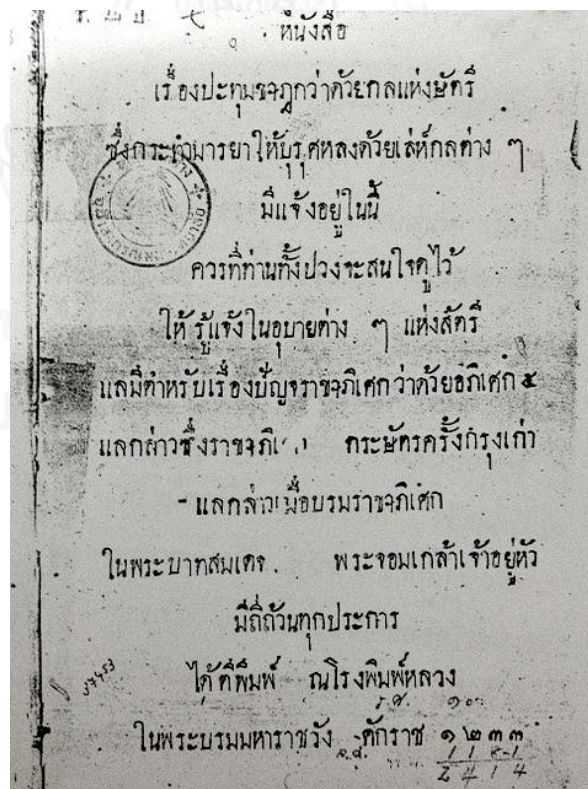 หนังสือ
เรื่องปะทุมชาฎกว่าด้วยกลแห่งษัตรี
ซึ่งกระทำมารยาให้บุรุศหลงด้วยเล่ห์กลต่าง ๆ
มีแจ้งอยู่ในนี้
ควรที่ท่านทั้งปวงจะสนใจดูไว้
ให้รู้แจ้งในอุบายต่าง ๆ แห่งสัตรี
แลมีตำหรับเรื่องปัญจราชาภิเศก ว่าด้วยอภิเศก ๕
แลกล่าวซึ่งราชาภิ กระษัตรครั้งกรุงเก่า
แลกล่าวเมื่อบรมราชาภิเศก
ในพระบาทสมเดจ พระจอมเกล้าเจ้าอยู่หัว
มีถี่ถ้วนทุกประการ
57453
ได้ตีพิมพ์ ณโรงพิมพ์หลวง
ในพระบรมมหาราชวัง จ.ศ. ศักราช ๑๒๓๓
2 4 1 4